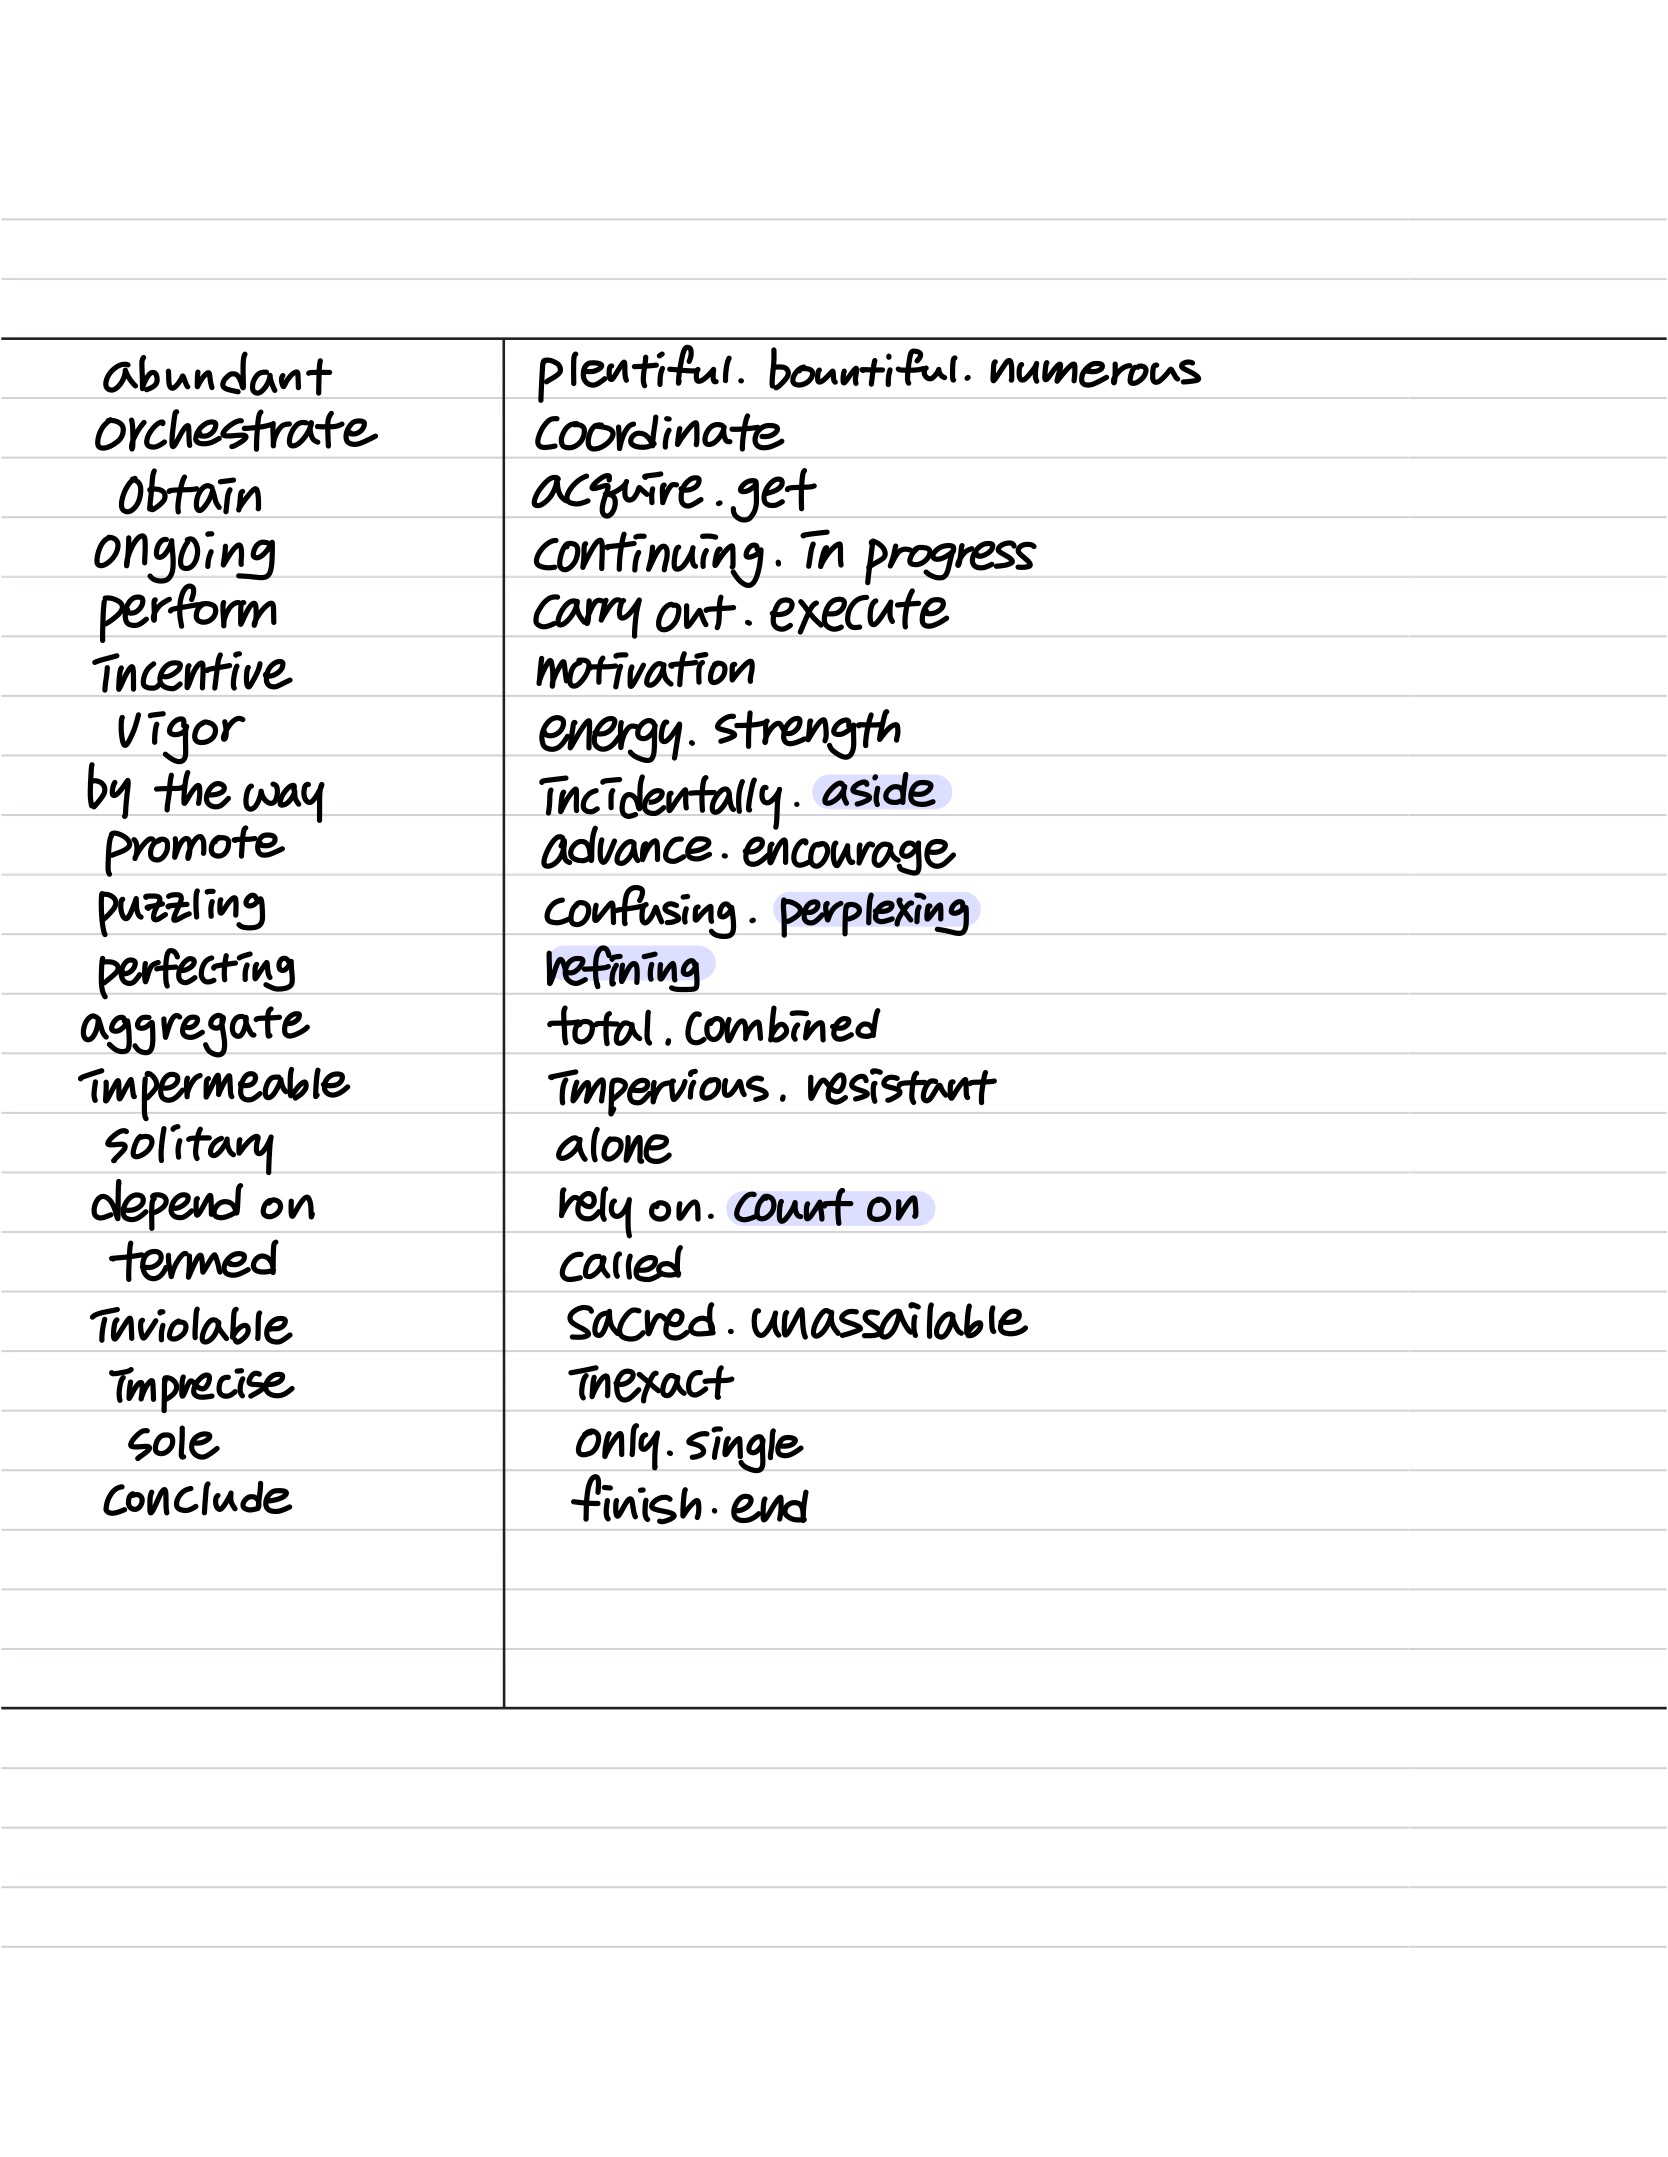 abundant plentiful. bountiful. numerous
orchestrate coordinate
obtain acquire. get
ongoing continuing. in progress
perform carry out. execute
incentive motivation
vigor energy. strength
by the way incidentally. aside
promote advance. encourage
puzzling confusing. perplexing
perfecting refining
aggregate total. combined
impermeable impervious. resistant
solitary alone
depend on rely on. count on
termed called
inviolable sacred. unassailable
imprecise inexact
sole only. single
conclude finish. end